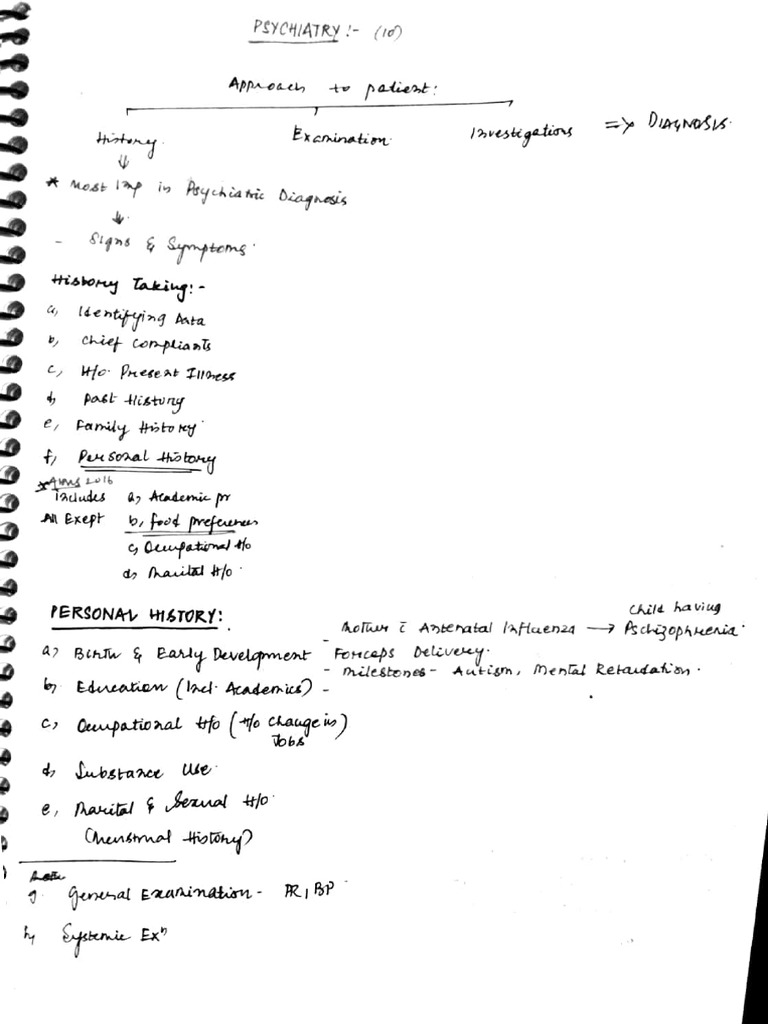 PSYCHIATRY :- (10)
Approach to patient:
History Examination Investigations => DIAGNOSIS.
* Most Imp in Psychiatric Diagnosis
- Signs & Symptoms.
History Taking:-
a, Identifying Data
b, Chief Compliants
c, H/o. Present Illness
d, Past History
e, Family History
f, Personal History
* AIIMS 2016
Includes a, Academic pr
All Exept b, food preferences
c, Occupational H/o
d, Marital H/o.
PERSONAL HISTORY:
- Mother c̄ Antenatal Influenza → Child having Pschizophrenia.
a) Birth & Early Development Forceps Delivery.
- Milestones - Autism, Mental Retardation.
b) Education (Incl. Academics) -
c, Occupational H/o (H/o Change in Jobs)
d, Substance Use.
e, Marital & Sexual H/o.
(Menstrual History)
g. General Examination - PR, BP
h, Systemic Exⁿ